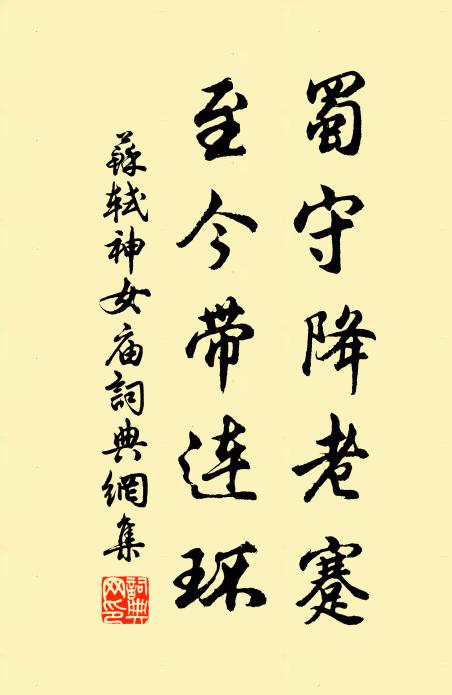 蜀守降老蹇
至今带连环
蘇轼神女庙詞典網集
詞典网印